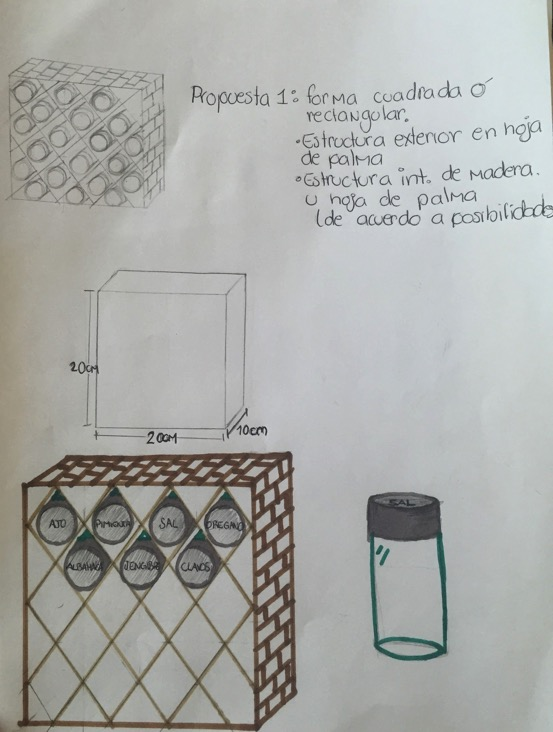 Propuesta 1: forma cuadrada ó
rectangular.
•Estructura exterior en hoja
de palma
•Estructura int. de madera.
u hoja de palma
(de acuerdo a posibilidades
20cm
20cm
10cm
AJO PIMIENTA SAL OREGANO
ALBAHACA JENGIBRE CLAVOS
SAL